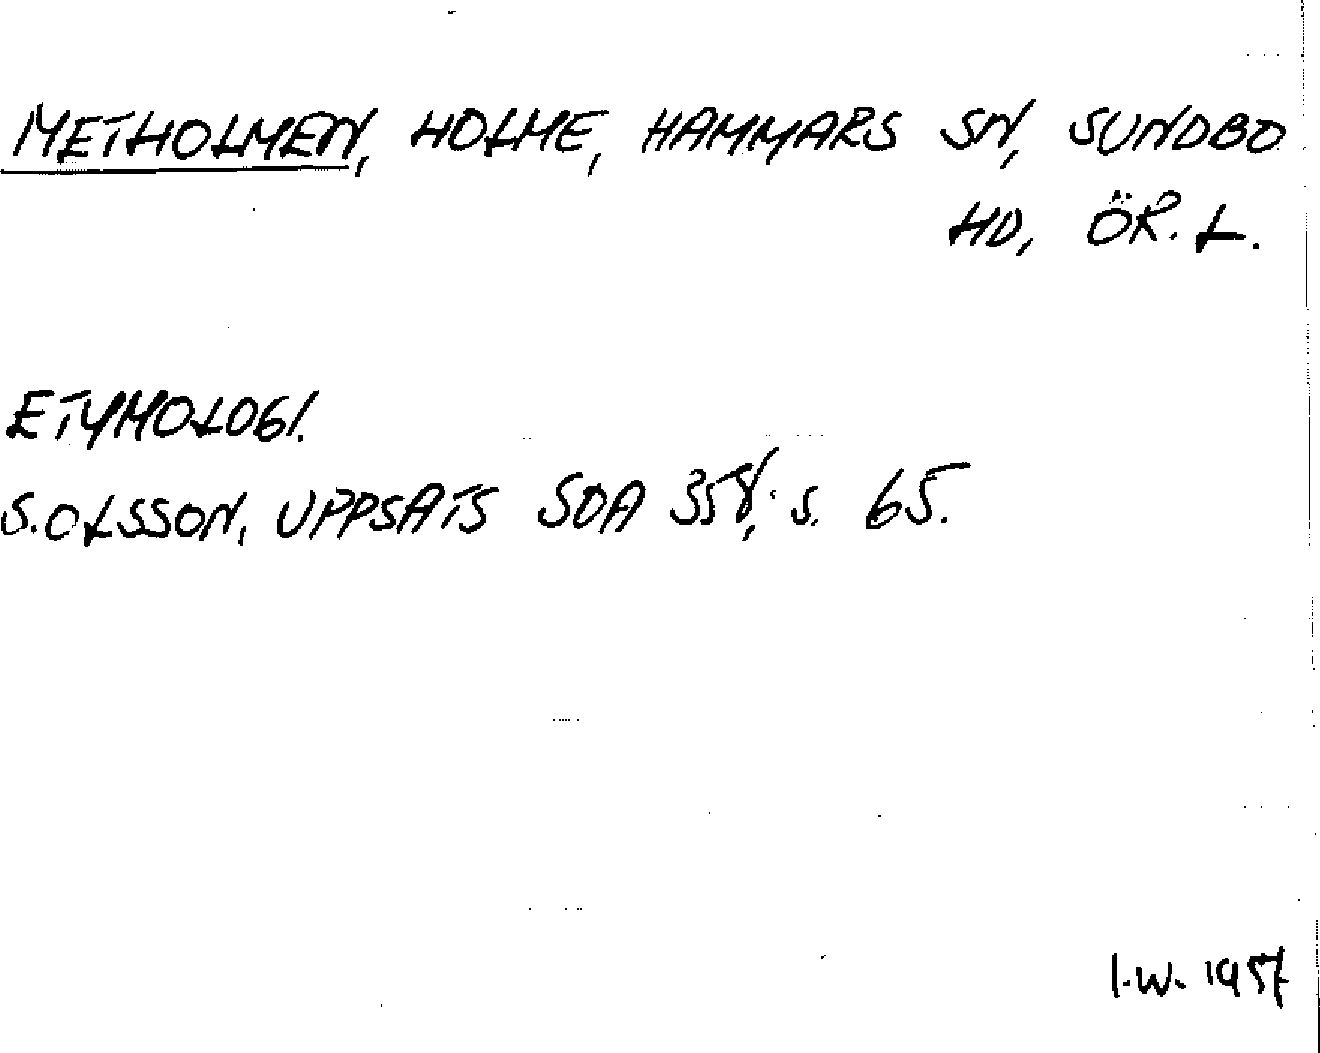 METHOLMEN, HOLME, HAMMARS SN, SUNDBO
HD, ÖR. L.
ETYMOLOGI.
S. OLSSON, UPPSATS SOA 358, s. 65.
I.W. 1957